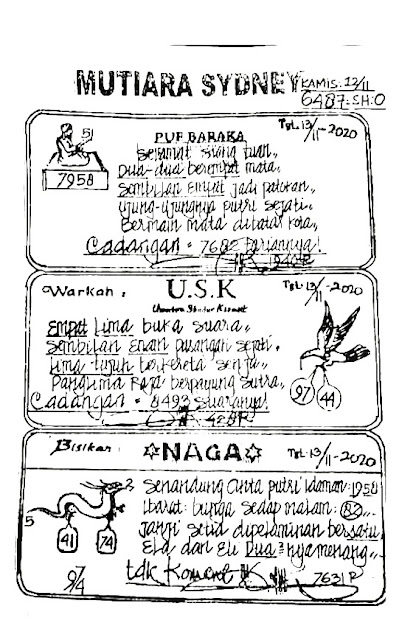 MUTIARA SYDNEY
KAMIS: 12/11
6487=SH:0
TgL. 13/11-2020
PUF BARAKA
5
7958
Selamat siang tuan,,
Dua-dua berempat mata,
Sembilan Empat jadi patokan,,
ujung-ujungnya putri sejati,,
Bermain mata dibatas kota,,
Cadangan = 7682 Pariannya!
Warkah :
U.S.K
TgL. 13/11-2020
Empat Lima buka suara,,
Sembilan Enam pasangan sejati,
Lima-tujuh berkereta senja,,
Panglima Raja berpayung Sutra,,
Cadangan = 8493 Suaranya!
97 44
Bisikan
NAGA
TgL. 13/11-2020
Senandung Cinta putri idaman: 1958
Ibarat bunga sedap malam:
Janji setia dipelaminan bersatu,
Ela dan Eli Dua =nya menang,,
tdk Koment
7631 R
5
2
41 74
97/4